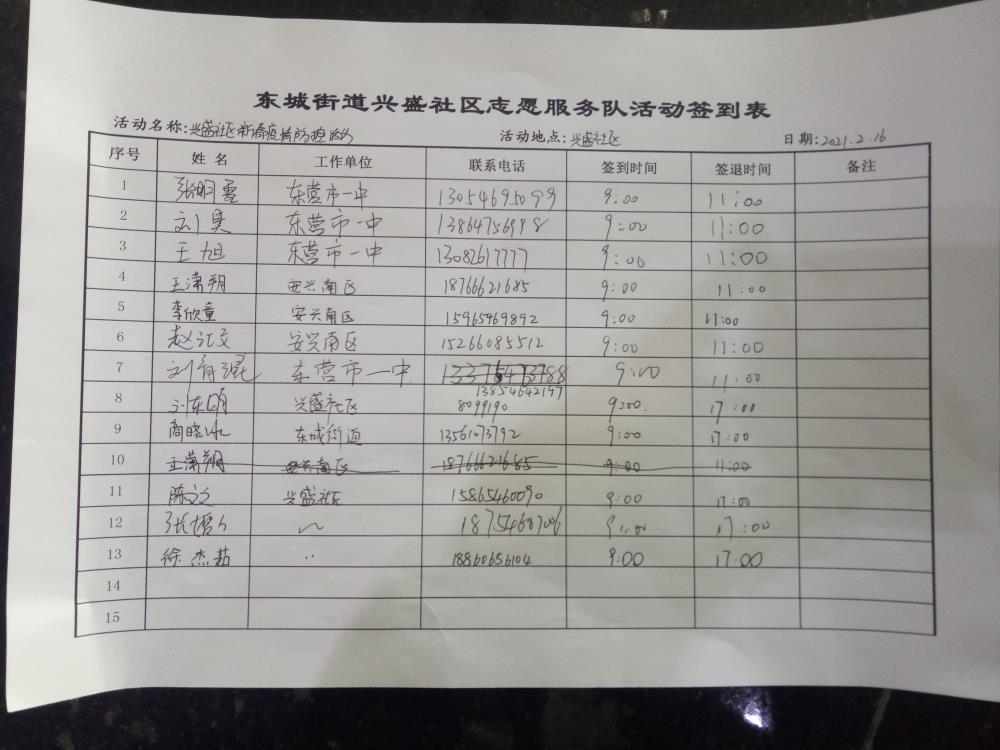 东城街道兴盛社区志愿服务队活动签到表
活动名称:兴盛社区新春疫情防控活动 活动地点:兴盛社区 日期:2021.2.16
序号 姓名 工作单位 联系电话 签到时间 签退时间 备注
1 张明 东营市一中 13054695099 9:00 11:00
2 刘昊 东营市一中 13864756998 9:00 11:00
3 王旭 东营市一中 13082617777 9:00 11:00
4 王潇朔 安兴南区 18766621685 9:00 11:00
5 李欣童 安兴南区 15965469892 9:00 11:00
6 赵汇文 安兴南区 15266085512 9:00 11:00
7 刘 东营市一中 13375473788 9:00 11:00
13854642197
8 刘东明 兴盛社区 8099190 9:00. 17:00
9 商晓冰 东城街道 13561073792 9:00 17:00
10 王潇朔 安兴南区 18766621685 9:00 11:00
11 陈文文 兴盛社区 15865460090 9:00 17:00
12 张 9:00 17:00
13 徐杰茹 18860656104 9:00 17:00
14
15